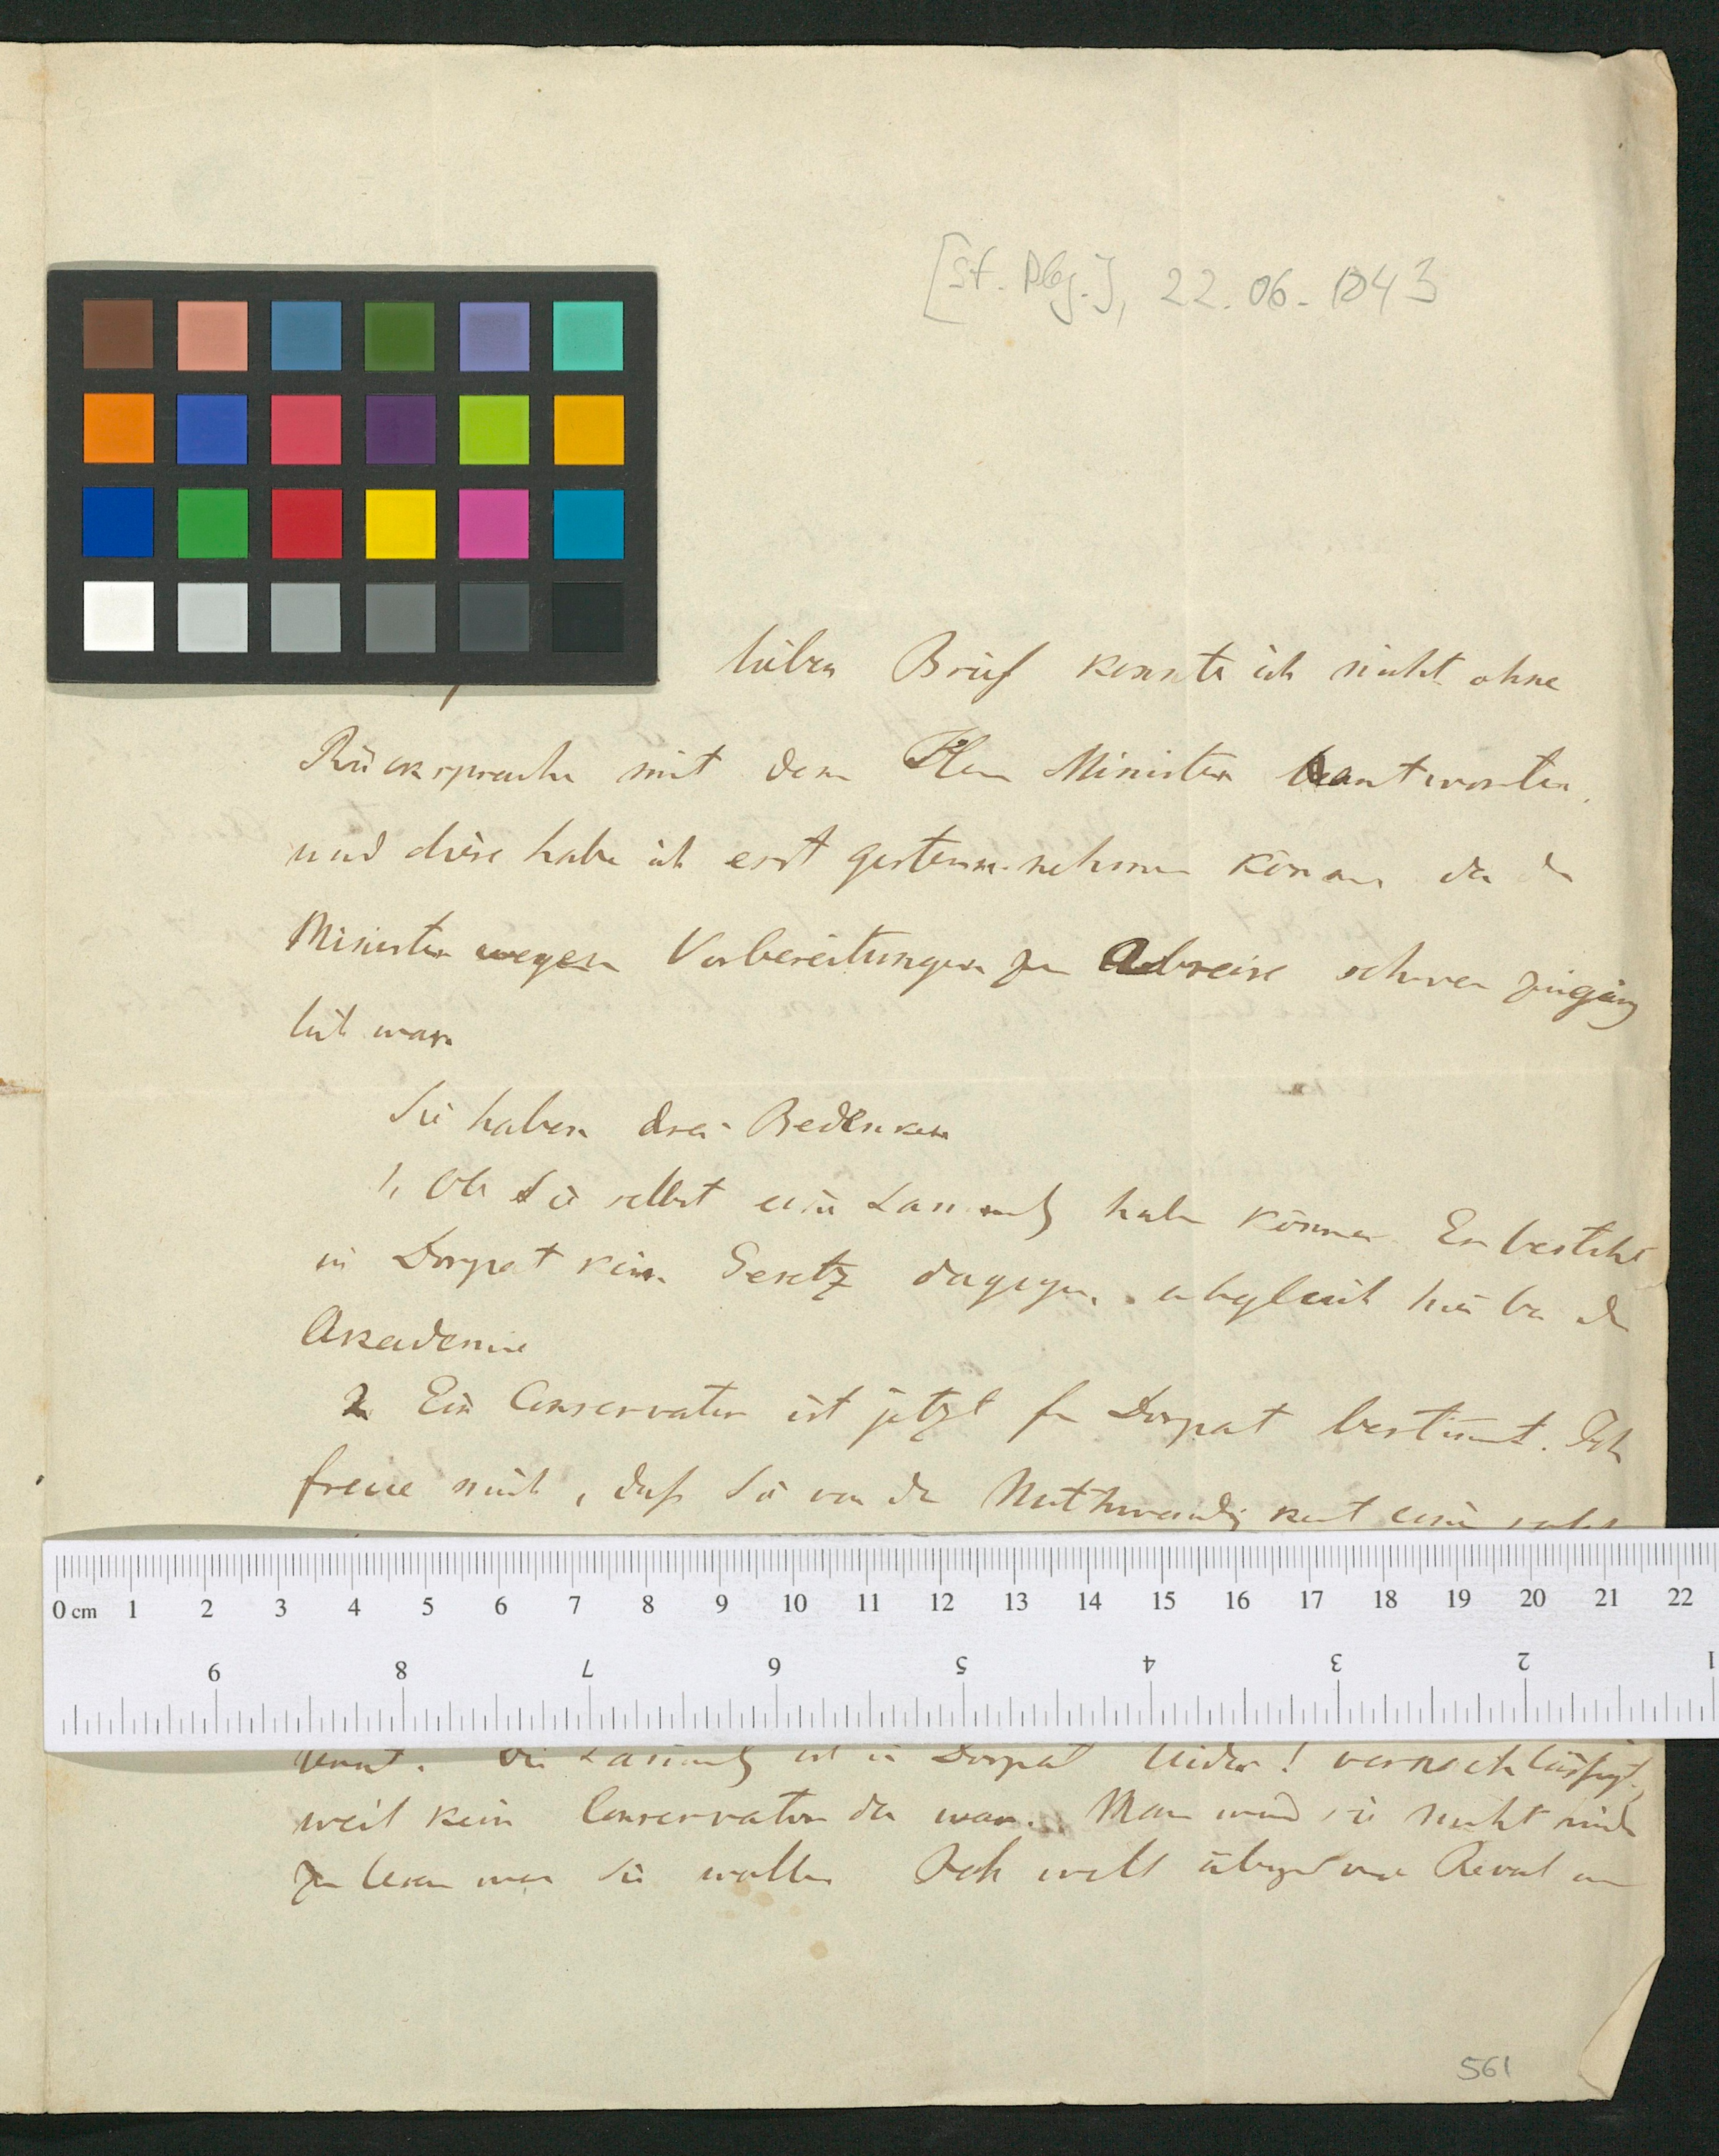 [St. Pbg.], 22.06.1843
lieben Brief konnte ich nicht ohne
Rücksprache mit dem Hern Minister beantworten,
und diese habe ich erst gestern nehmen können da der
Minister wegen Vorbereitungen zur Abreise schwer zugäng
lich war.
Sie haben drei Bedenken
1, Ob Sie selbst eine Samml haben können. Es besteht
in Dorpat kein Gesetz dagegen, obgleich hier bei der
Akademie
2 Ein Conservator ist jetzt für Dorpat bestimt. Ich
freue mich, daß Sie von der Nothwendigkeit eines
0 cm 1 2 3 4 5 6 7 8 9 10 11 12 13 14 15 16 17 18 19 20 21 22
9 8 7 6 5 4 3 2 1
Die Samml ist in Dorpat leider! vernachlässigt,
weil kein Conservator da war. Man wird sie nicht
Sie wollen Ich will Reval
561